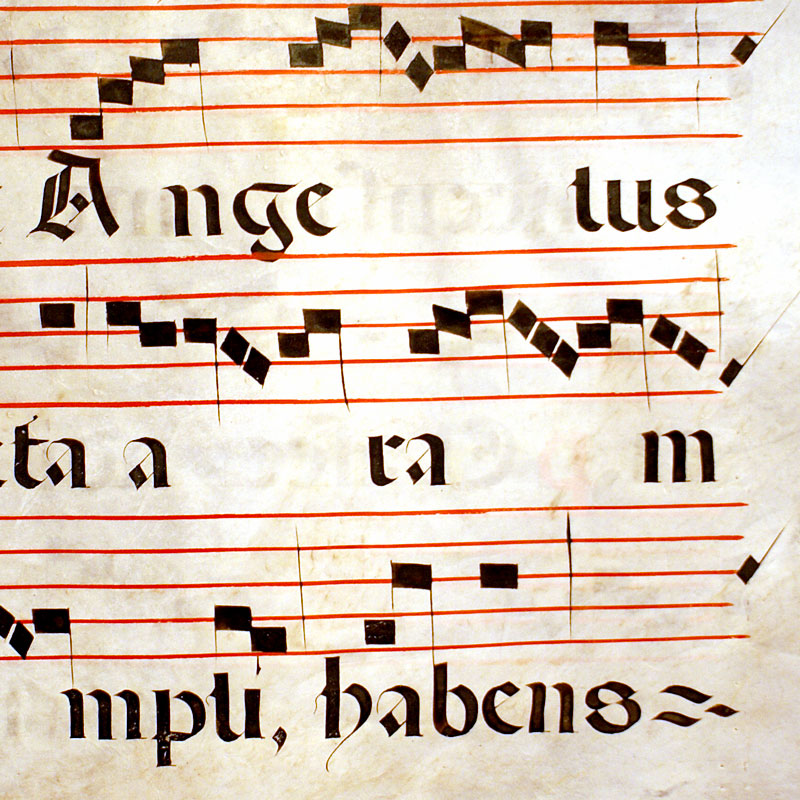 A nge lus
xta a ra m
mpli, habens